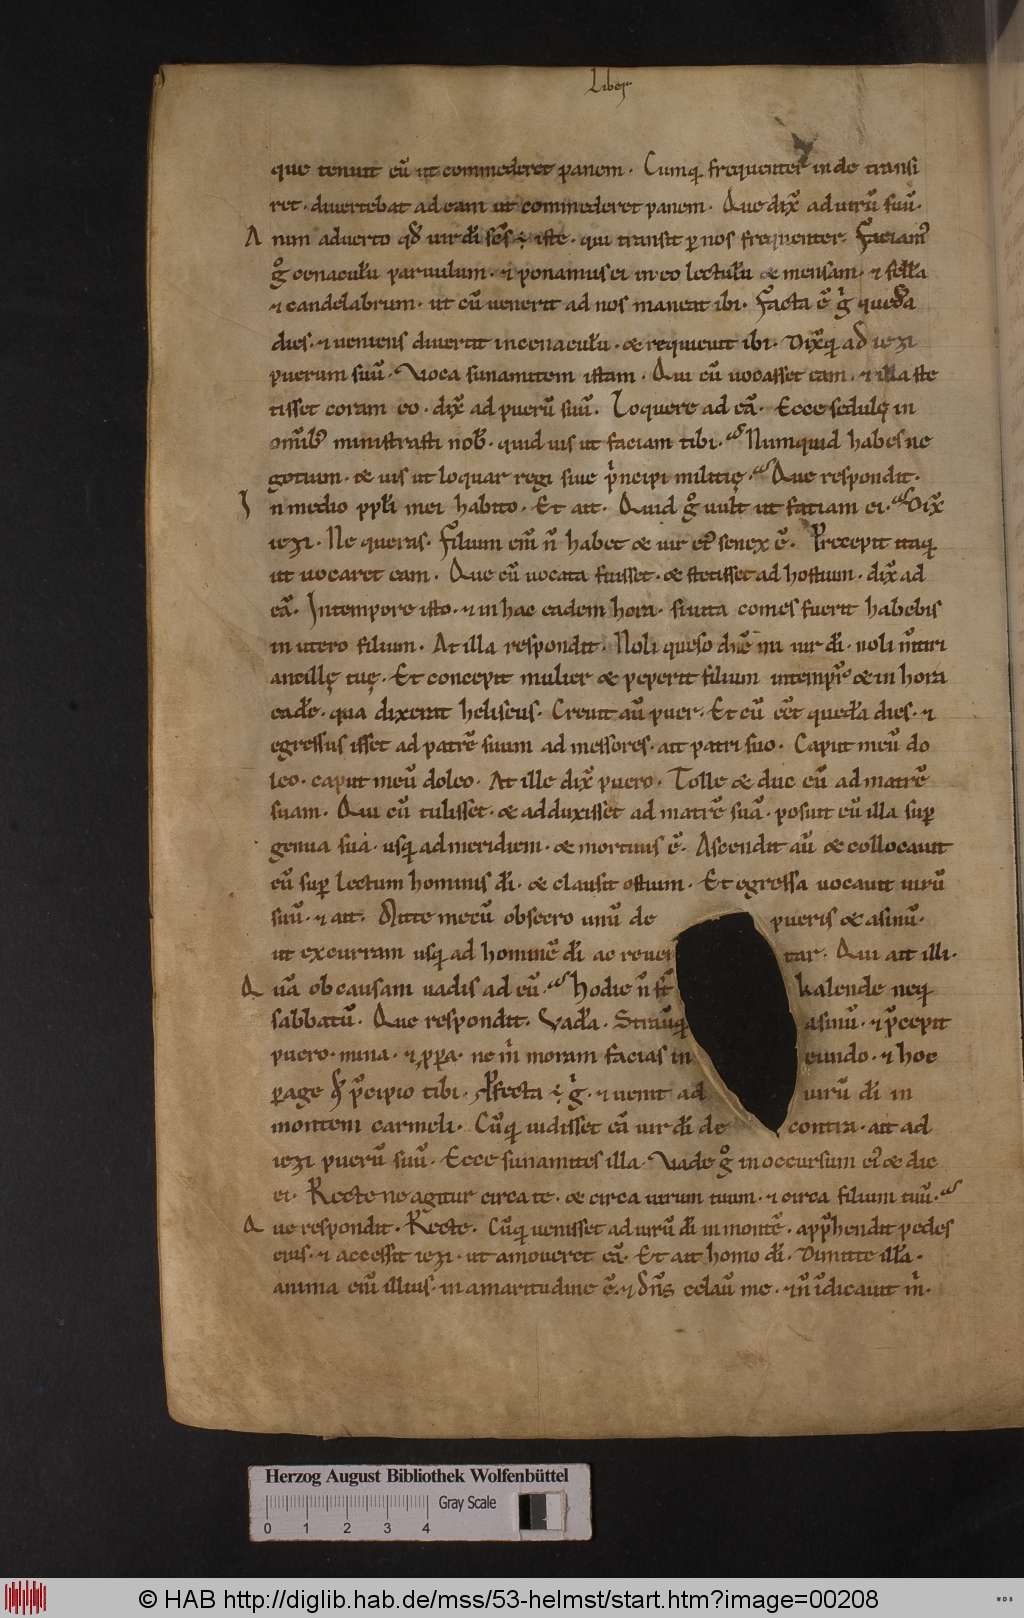 Liber
que tenuit eū ut commederet panem. Cumq; frequenter inde transi
ret. divertebat ad eam ut commederet panem. Que dix̄ ad uirū suū.
A nim adverto qđ uir dī sc̄s ē iste. qui transit p nos frequenter. Faciam᷒
gͦ cenaculū paruulum. ⁊ ponamus ei in eo lectulū & mensam. ⁊ sellā
⁊ candelabrum. ut cū uenerit ad nos maneat ibi. Facta ē gͥ quedā
dies. ⁊ ueniens divertit in cenaculū. & requieuit ibi. Dix̄q; ad iezi
puerum suū. Voca sunamitem istam. Qui cū uocasset eam. ⁊ illa ste
tisset coram eo. dix̄ ad puerū suū. Loquere ad eā. Ecce sedulę in
omīb᷒ ministrasti nob̄. quid uis ut faciam tibi. Numquid habes ne
gotium. & uis ut loquar regi siue pͥncipi militię. Que respondit.
I n medio ppl̄i mei habito. Et ait. Quid gͦ uult ut faciam ei. Dix̄
iezi. Ne queras. Filium em̄ n̄ habet & uir ei᷒ senex ē. Precepit itaq;
ut uocaret eam. Que cū uocata fuisset. & stetisset ad hostium. dix̄ ad
eā. In tempore isto. ⁊ in hac eadem hora. si uita comes fuerit habebis
in utero filium. At illa respondit. Noli queso dn̄e mi uir dī. noli m̄tiri
ancillę tuę. Et concepit mulier & peperit filium in temp̄r & in hora
eadē. qua dixerat heliseus. Creuit aū puer. Et cū eēt quedā dies. ⁊
egressus isset ad patrē suum ad messores. ait patri suo. Caput meū do
leo. caput meū doleo. At ille dix̄ puero. Tolle & duc eū ad matrē
suam. Qui cū tulisset. & adduxisset ad matrē suā. posuit eū illa sup
genua sua. usq; ad meridiem. & mortuus ē. Ascendit aū & collocauit
eū sup lectum hominis dī. & clausit ostium. Et egressa uocauit uirū
suū. ⁊ ait. Mitte mecū obsecro unū de pueris & asinū.
ut excurram usq; ad hominē dī ac rever tar. Qui ait illi.
Q uā ob causam uadis ad eū. hodie n̄ st̄ kalende neq;
sabbatū. Que respondit. Vadā. Strauq; asinū. ⁊ p̄cepit
puero. mina. ⁊ ppa. ne m̄ moram facias in eundo. ⁊ hoc
page qđ p̄cipio tibi. Pfecta ē gͥ. ⁊ uenit ad uirū dī in
montem carmeli. Cūq; uidisset eā uir dī de contra. ait ad
iezi puerū suū. Ecce sunamites illa. Vade gͦ in occursum ei᷒ & dic
ei. Recte ne agitur circa te. & circa uirum tuum. ⁊ circa filium tuū.
Q ue respondit. Recte. Cūq; uenisset ad uirū dī in montē. app̄hendit pedes
eius. ⁊ accessit iezi. ut amoueret eā. Et ait homo dī. Dimitte illā.
anima em̄ illius. in amaritudine ē. ⁊ dn̄s celau me. ⁊ n̄ īdicauit m̄.
Herzog August Bibliothek Wolfenbüttel
Gray Scale
0 1 2 3 4
© HAB http://diglib.hab.de/mss/53-helmst/start.htm?image=00208